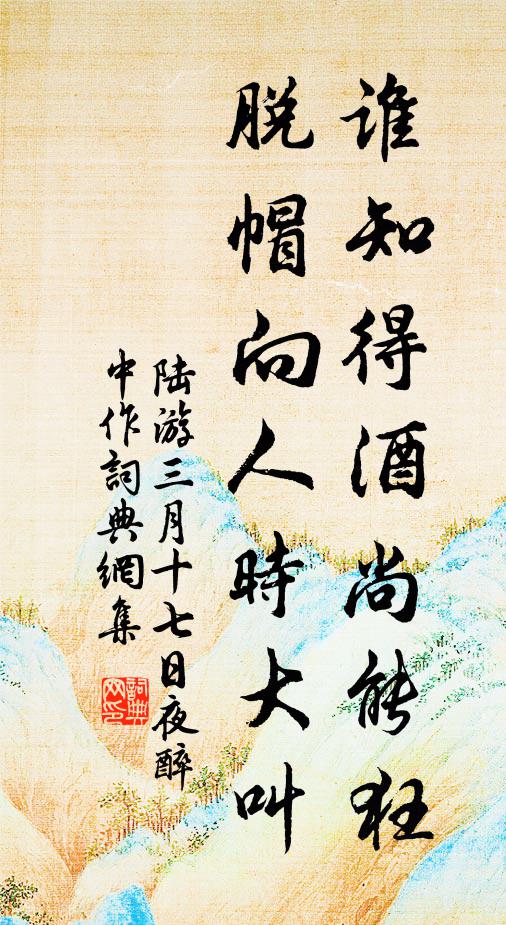 谁知得酒尚能狂
脱帽向人時大叫
陆游三月十七日夜醉
中作詞典網集
詞典
网印